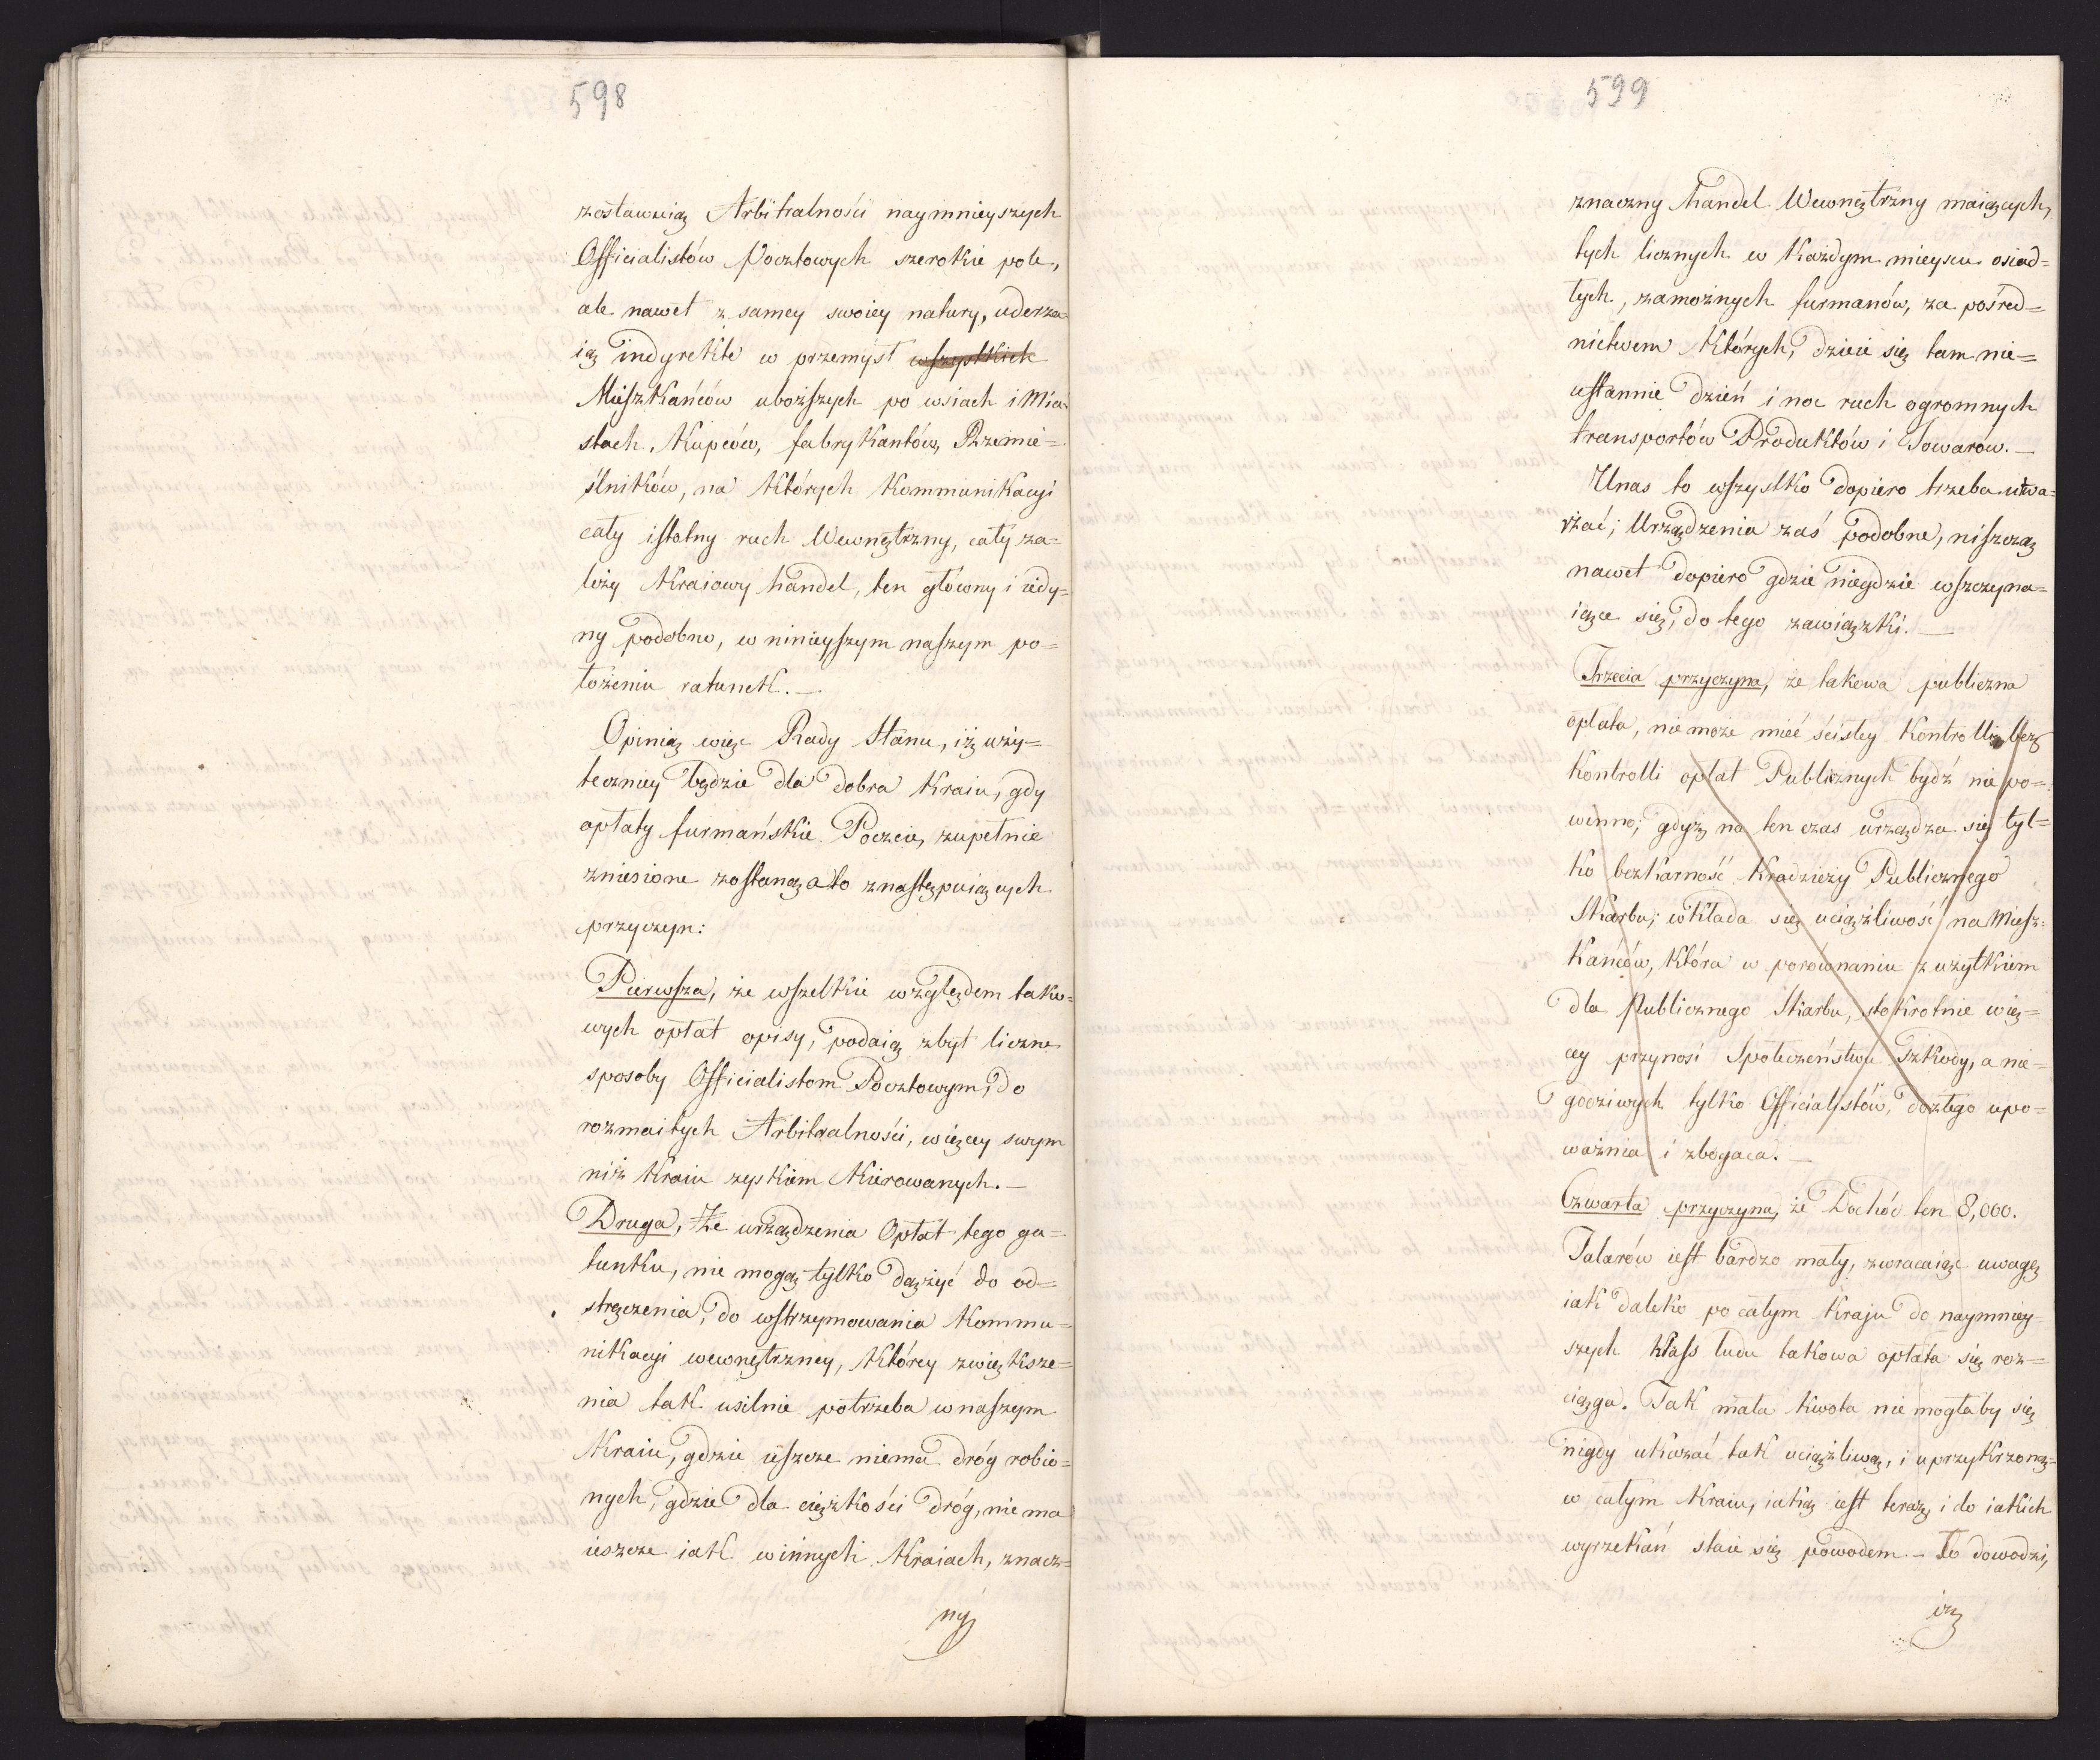 598
zostawuią Arbitralności naymnieyszych
Officialistów Pocztowych szerokie pole,
ale nawet z samey swoiey natury, uderza=
ią indyrekte w przemysł wszystkich
Mieszkańców uboższych po wsiach i Mia=
stach, Kupców, fabrykantów, Rzemie=
ślników, na których kommunikacyi
cały istotny ruch Wewnętrzny, cały za=
leży Kraiowy handel, ten główny i iedy=
ny podobno, w ninieyszym naszym po=
łożeniu ratunek. —
Opinią więc Rady Stanu, iż uży=
teczniey będzie dla dobra Kraiu, gdy
opłaty furmańskie Poczcie, zupełnie
zniesione zostaną a to z następuiących
przyczyn:
Pierwsza, że wszelkie względem tako=
wych opłat opisy, podaią zbyt liczne
sposoby Officialistom Pocztowym, do
rozmaitych Arbitralności, więcey swym
niż Kraiu zyskiem kierowanych. —
Druga, Że urządzenia Opłat tego ga=
tunku, nie mogą tylko dążyć do od=
stręczenia, do wstrzymowania Kommu=
nikacyi wewnętrzney, którey zwiększe=
nia tak usilnie potrzeba w naszym
Kraiu, gdzie ieszcze niema dróg robio=
nych, gdzie dla ciężkości dróg, nie ma
ieszcze iak w innych Kraiach, znacz=
ny
599
znaczny handel Wewnętrzny maiących,
tych licznych w każdym mieyscu osiad=
łych, zamożnych furmanów, za pośred=
nictwem których, dzieie się tam nie=
ustannie dzień i noc ruch ogromnych
transportów Produktów i Towarów. —
U nas to wszystko dopiero trzeba utwa=
rzać; Urządzenia zaś podobne, niszczą
nawet dopiero gdzie niegdzie wszczyna=
iące się, do tego zawiązki. —
Trzecia przyczyna, że takowa publiczna
opłata, nie może mieć ścisłey Kontrolli, bez
Kontrolli opłat Publicznych bydź nie po=
winno; gdyż na ten czas urządza się tyl=
ko bezkarność kradzieży Publicznego
Skarbu; wkłada się uciążliwość na Miesz=
kańców, która w porównaniu z użytkiem
dla Publicznego Skarbu, stokrotnie wię=
cey przynosi Społeczeństwu szkody, a nie=
godziwych tylko Officialistów, do złego upo=
ważnia i zbogaca. —
Czwarta przyczyna, że Dochód ten 8,000.
Talarów iest bardzo mały, zwracaiąc uwagę
iak daleko po całym Kraju do naymniey=
szych klass ludu takowa opłata się roz=
ciąga. Tak mała kwota nie mogłaby się
nigdy ukazać tak uciążliwą, i uprzykrzoną
w całym Kraiu, iaką iest teraz, i do iakich
wyrzekań staie się powodem. — To dowodzi,
iż